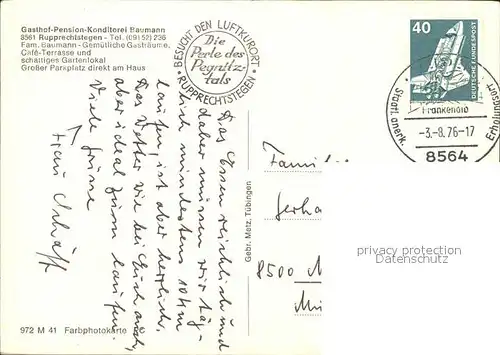 Gasthof-Pension-Konditorei Baumann
8561 Rupprechtstegen - Tel. (09152) 236
Fam. Baumann - Gemütliche Gasträume,
Café-Terrasse und
schattiges Gartenlokal
Großer Parkplatz direkt am Haus
BESUCHT DEN LUFTKURORT
Die
Perle des
Pegnitz-
tals
RUPPRECHTSTEGEN
40
DEUTSCHE BUNDESPOST
Frankenalb
Staatl. anerk.
Erholungsort
-3.-8.76-17
8564
Das Essen reichlich und
daher müssen wir täg-
lich mindestens 10 km
laufen, ist aber herrlich.
Das Wetter wie bei Euch auch,
aber ideal zum laufen.
Viele Grüsse
Famili
Gerha
8500 N
Gebr. Metz, Tübingen
privacy protection
Datenschutz
972 M 41 Farbphotokarte